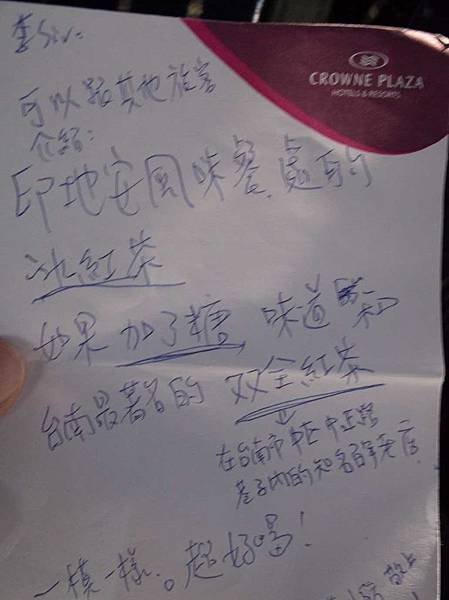 CROWNE PLAZA
HOTELS & RESORTS
李Sir:
可以跟其他旅客
介紹:
印地安風味餐處的
冰紅茶
如果加了糖, 味道和
台南最著名的双全紅茶
在台南市中區中正路
巷子內的知名百年老店
一模一樣。超好喝!